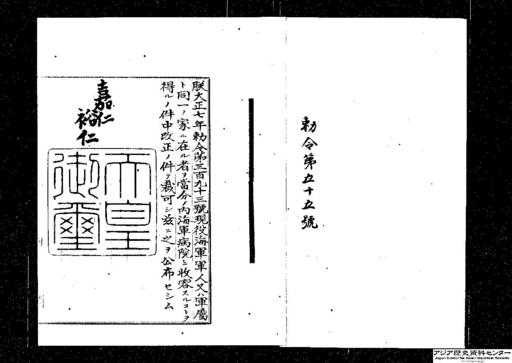 勅令第五十五號
朕大正七年勅令第三百九十三號現役海軍軍人又ハ軍屬
ト同一ノ家ニ在ル者ヲ當分ノ内海軍病院ニ收容スルコトヲ
得ルノ件中改正ノ件ヲ裁可シ茲ニ之ヲ公布セシム
嘉仁
裕仁
天皇
御璽
アジア歴史資料センター
Japan Center for Asian Historical Records